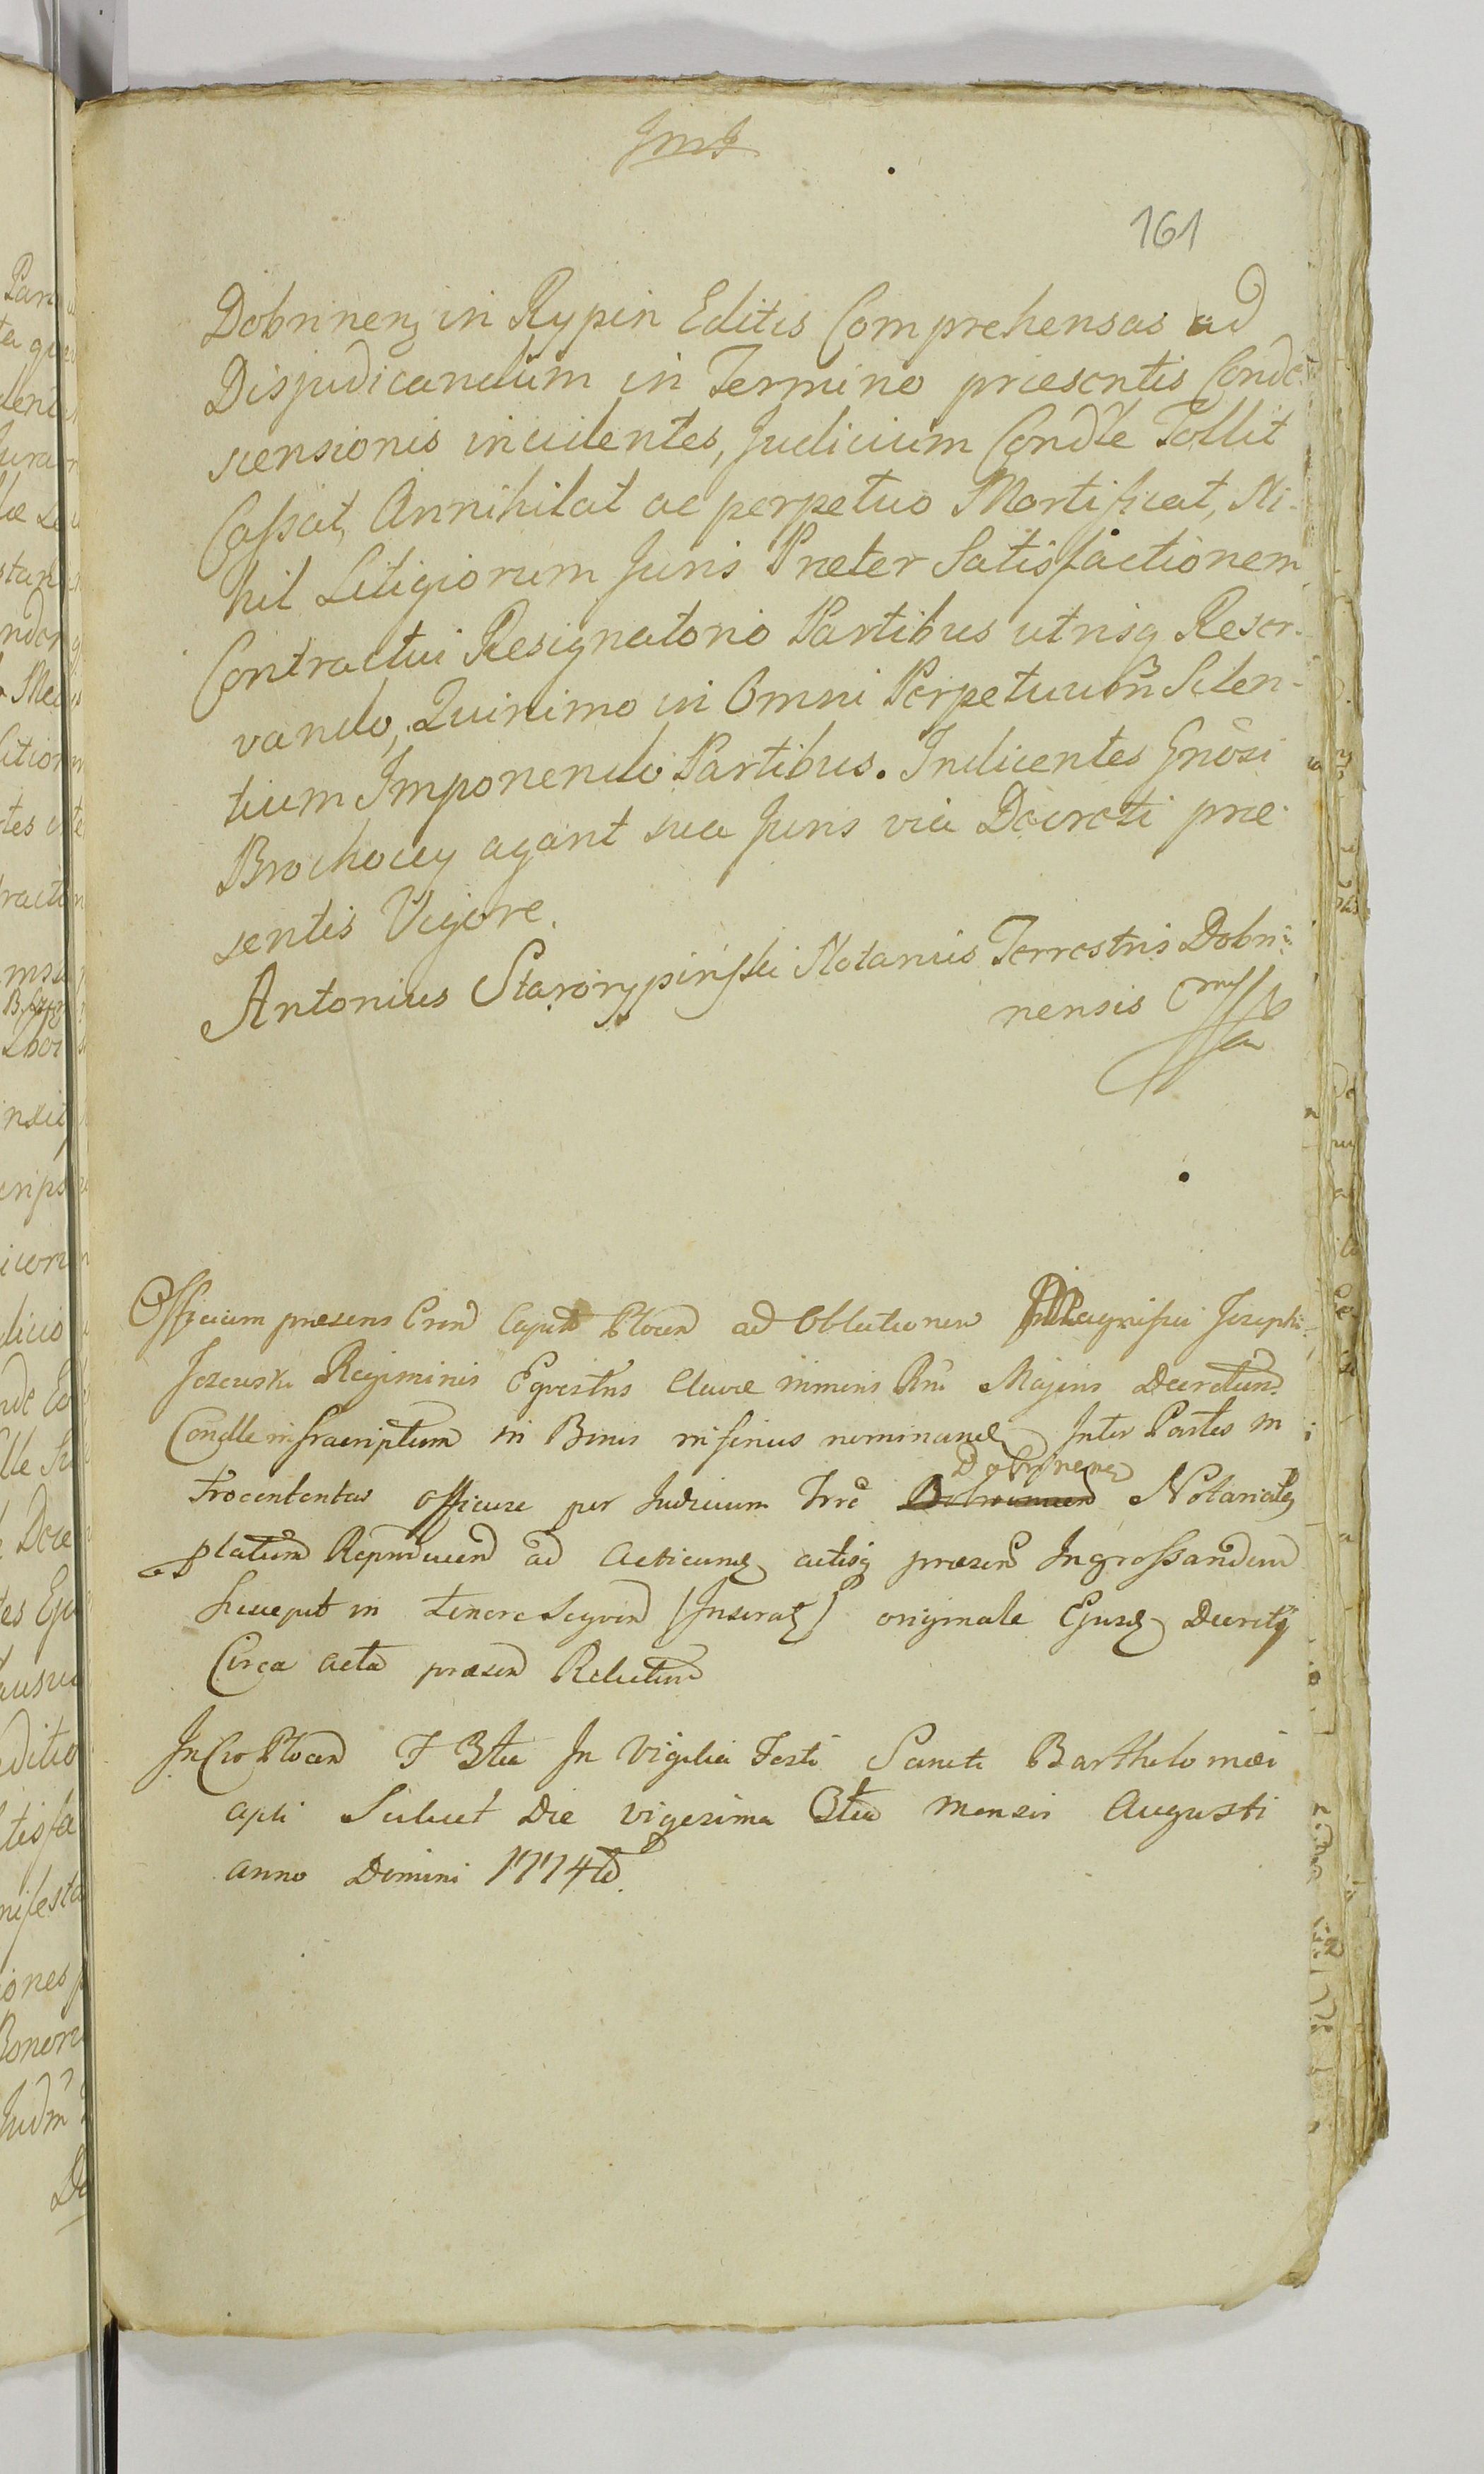 161
Dobrinenz in Rypin Editis Comprehensas ad
Disjudicandum in Termino præsentis Conde-
scensionis incidentes, Judicium Condle Tollit
Cassat, Annihilat ac perpetuo Mortificat, Ni-
hil Litigiorum Juris Præter Satisfactionem
Contractui Resignatorio Partibus utrisq Reser-
vando, Quinimo in Omni Perpetuum Silen-
tium Imponendo Partibus. Indicentes Gnosi
Brochoccy agant sua Juris via Decreti præ-
sentis Vigore.
Antonius Starorypinski Notarius Terrestris Dobri-
nensis mp
Officium præsens Cren Capit Plocen ad Oblationem Magnifici Josephi
Jezewski Regiminis Eqvestris Clavæ minoris Rni Majoris Decretum
Condle infrascriptum in Binis inferius nominand Inter Partes in
officiose per Judicium Trre Dobrinen Notarial
platum Reproducen ad Acticand actisq præsen Ingrossandum
Suscepit in tenore Seqven [Inserat] originale Ejusd Decreti
Circa acta præsen Relictum
In Cro Plocen F 3tia In Vigilia Festi Sancti Bartholomæi
apli Scilicet Die vigesima 3tia Mensis Augusti
anno Domini 1774to